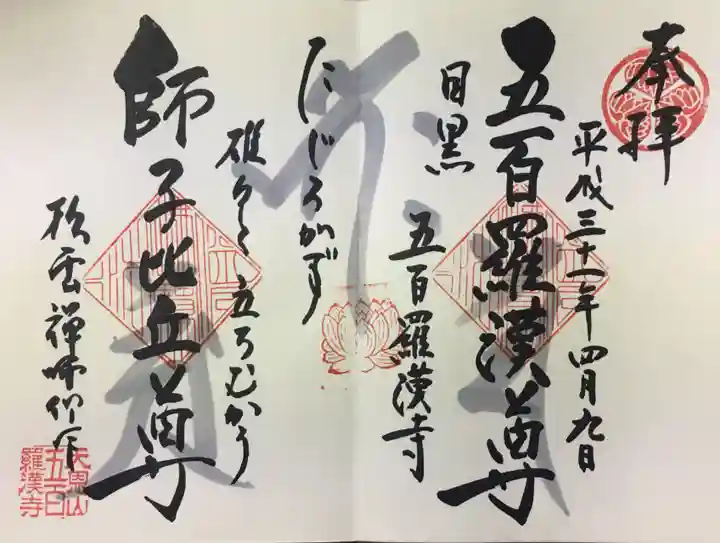 奉拝
平成三十一年四月九日
五百羅漢尊
目黒
五百羅漢寺
にじろかず
碓々と立ちむかう
師子比丘尊
松雲禅師作
天恩山
五百
羅漢寺